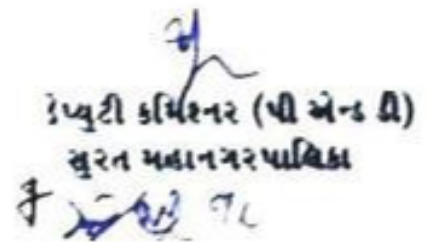 ડેપ્યુટી કમિશ્નર (પી એન્ડ ડી)
સુરત મહાનગરપાલિકા